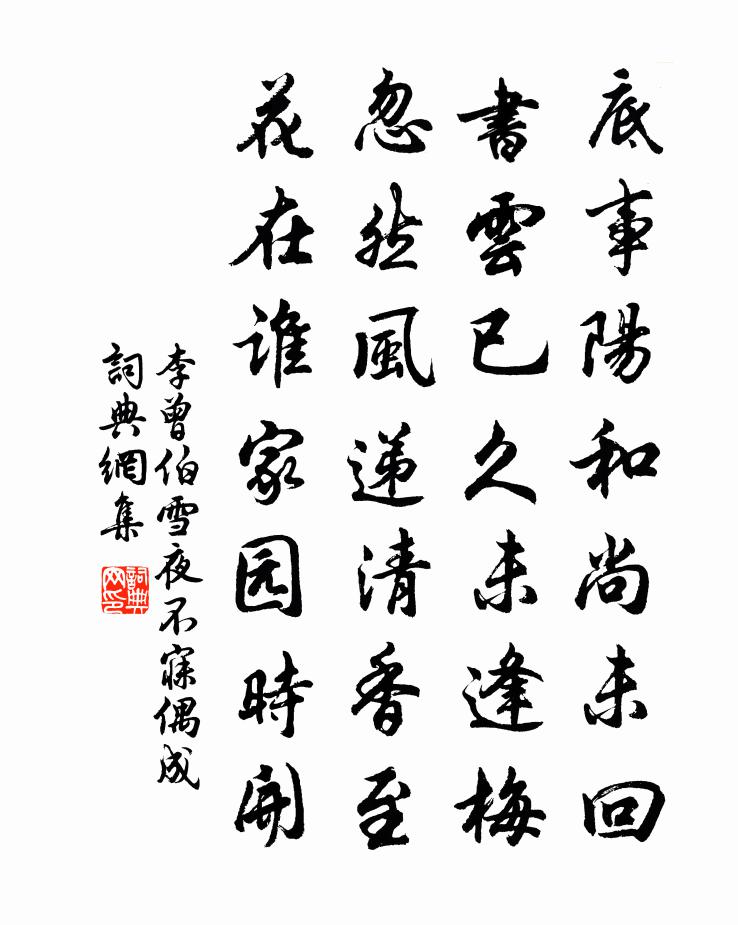 底事陽和尚未回
書雲已久未逢梅
忽然風递清香至
花在谁家园時開
李曾伯雪夜不寐偶成
詞典網集
詞典网印